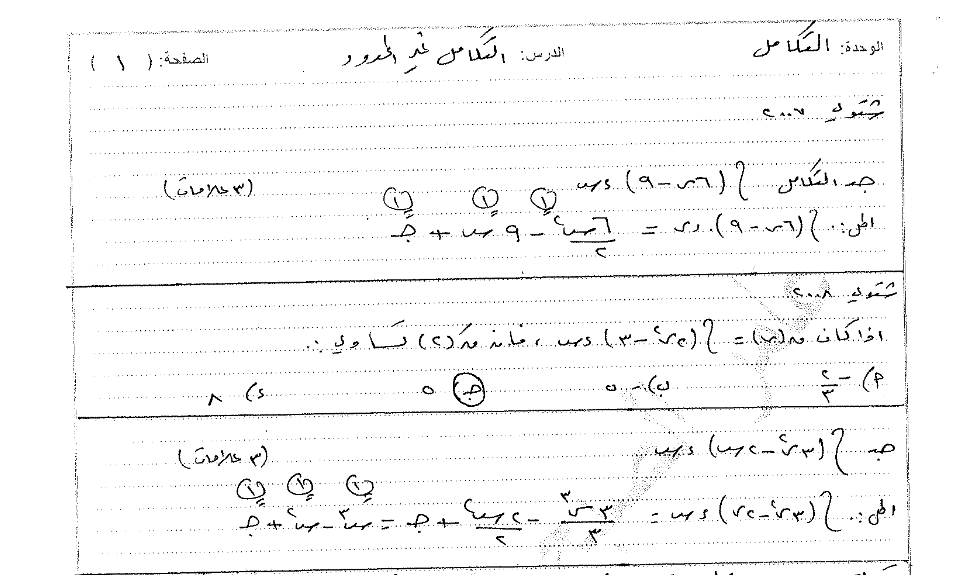 الوحدة: التكامل الدرس: التكامل غير المحدود الصفحة: (١)
شتوي ٢٠٠٧
جد التكامل ∫(٦س-٩) ءس (٣ علامات)
① ① ①
الحل:. ∫(٦س-٩).ءس = ٦س٢/٢ - ٩س + جـ
شتوي ٢٠٠٨
اذا كان ق(س) = ∫(٢س٢-٣) ءس ، فإن قَ(٢) تساوي :.
أ) -٢/٣ ب) -٥ جـ) ٥ ء) ٨
جد ∫(٣س٢-٢س) ءس (٣ علامات)
① ① ①
الحل:. ∫(٣س٢-٢س) ءس = ٣س٣/٣ - ٢س٢/٢ + جـ = س٣-س٢+جـ